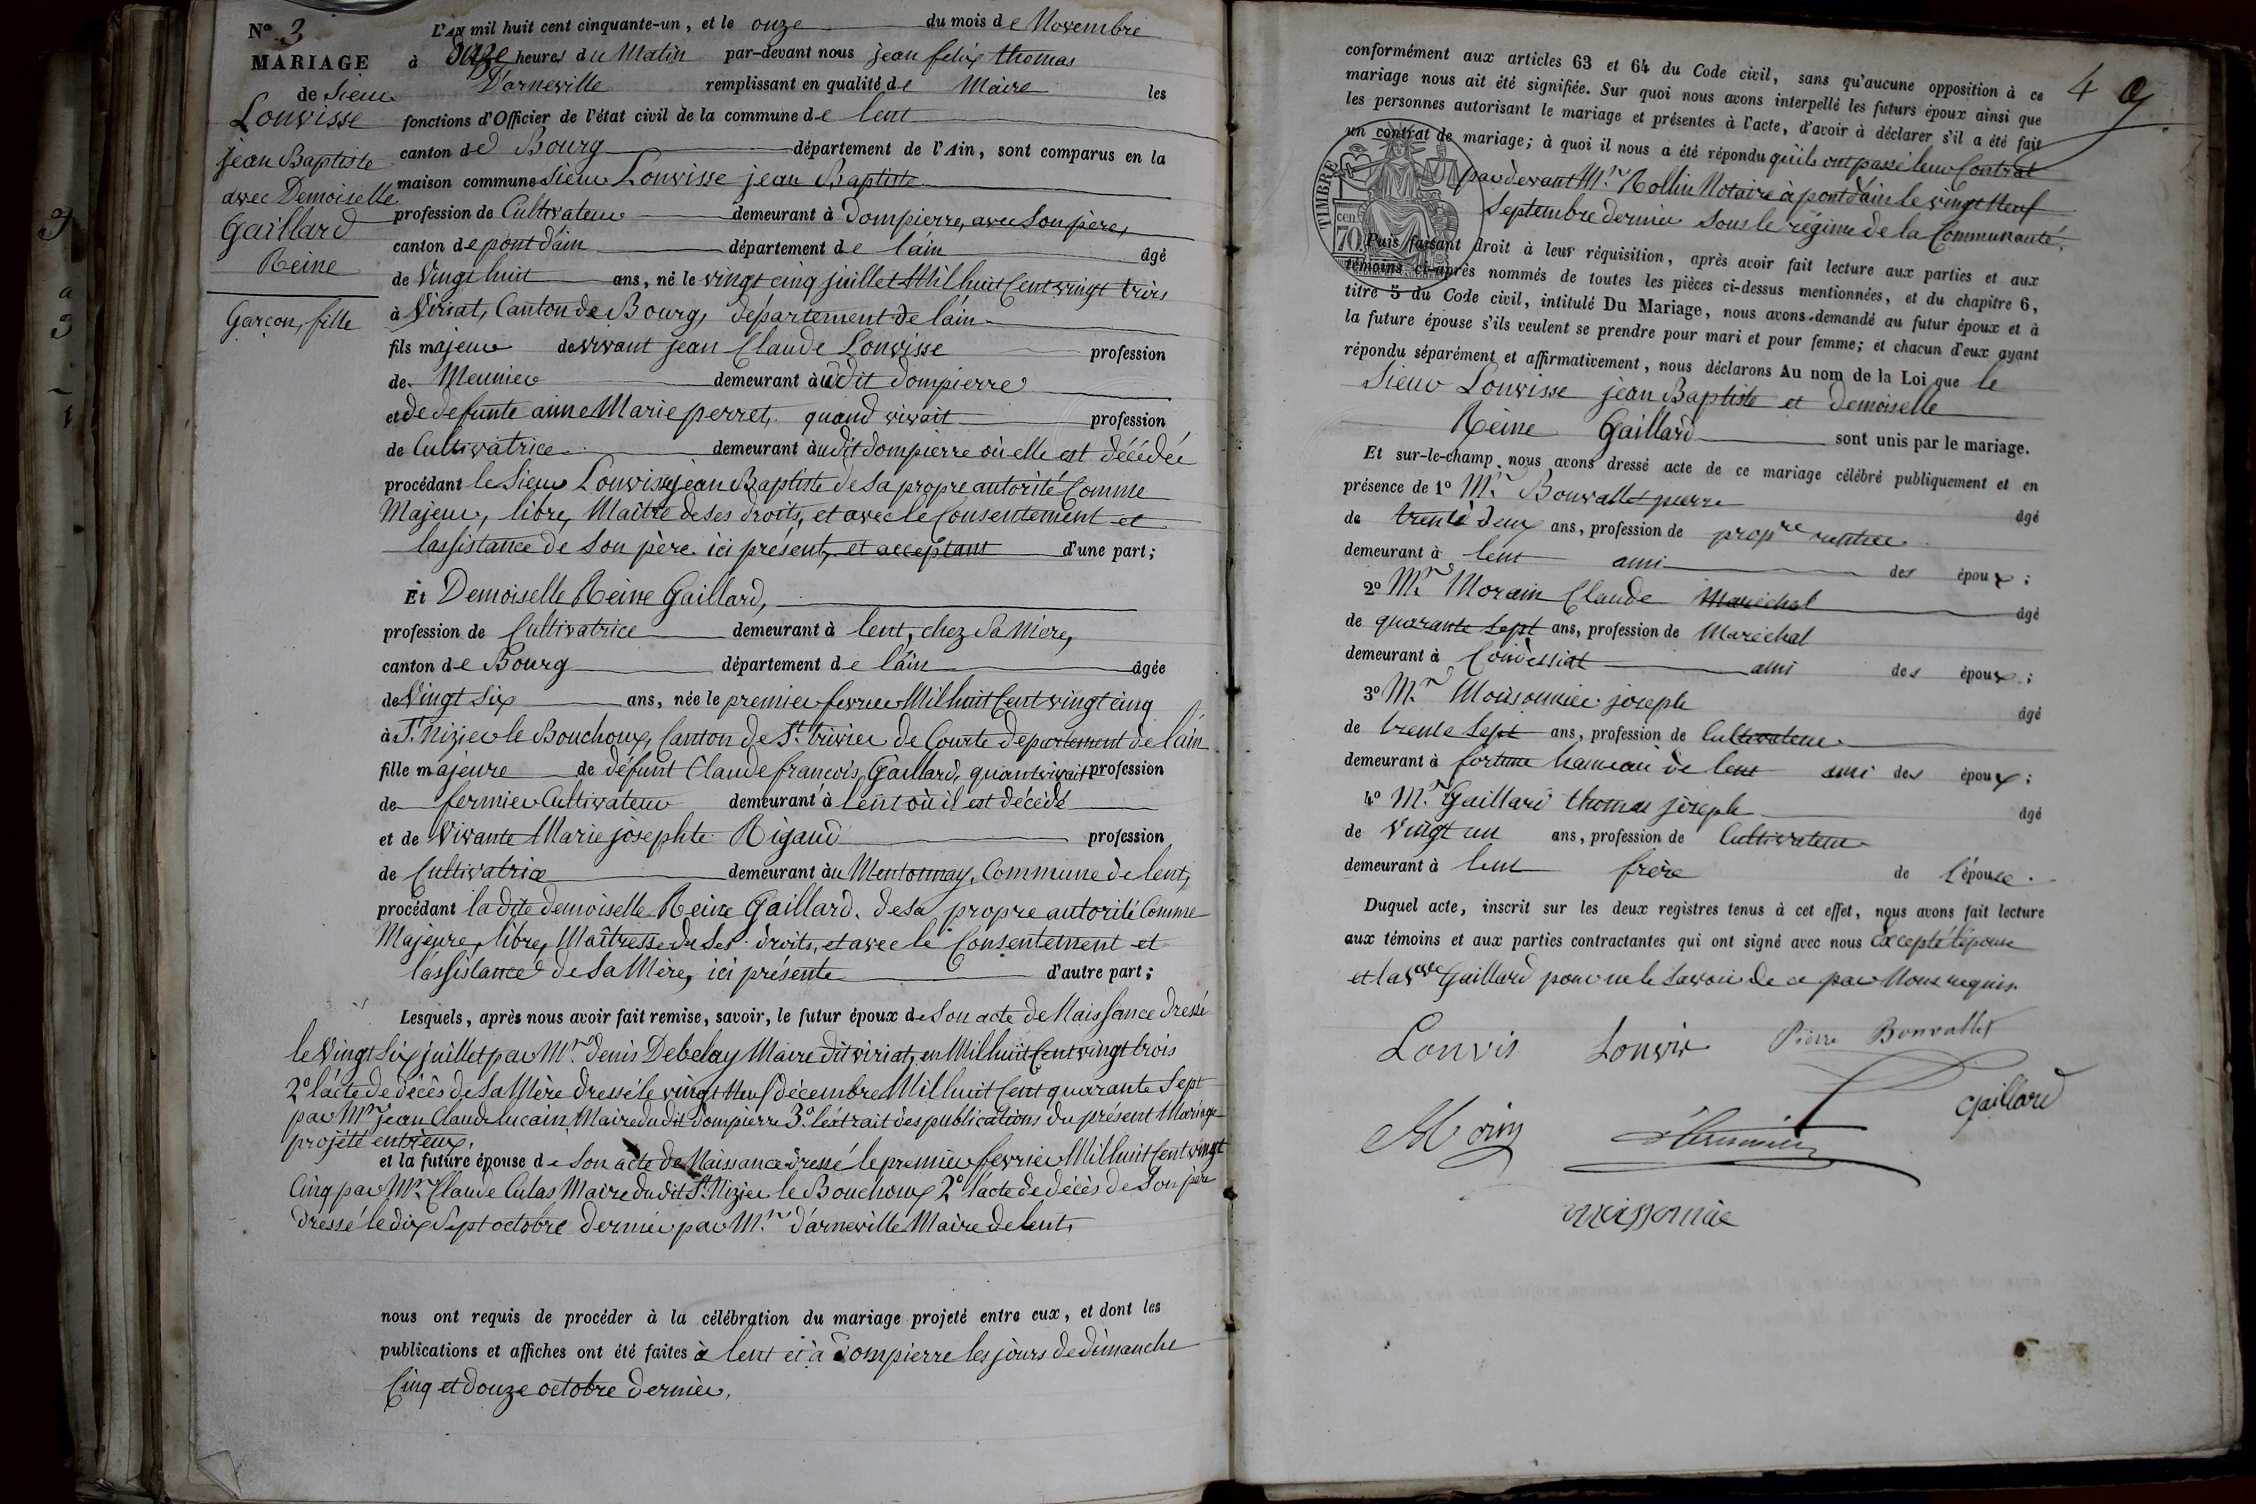 Nº 3
MARIAGE
de Sieur
Louvisse
jean Baptiste
avec Demoiselle
Gaillard
Reine
Garçon, fille
L'AN mil huit cent cinquante-un, et le onze du mois de Novembre
à onze heures du Matin par-devant nous jean felix thomas
Darneville remplissant en qualité de Maire les
fonctions d'Officier de l'état civil de la commune de lent
canton de Bourg département de l'Ain, sont comparus en la
maison commune Sieur Louvisse jean Baptiste
profession de Cultivateur demeurant à Dompierre, avec Son père,
canton de pont d'ain département de l'ain âgé
de Vingt huit ans, né le vingt cinq juillet Mil huit Cent vingt trois
à Viriat, Canton de Bourg, département de l'ain
fils majeur de vivant jean Claude Louvisse profession
de Meunier demeurant àudit dompierre
et de defunte anne Marie perret, quand vivait profession
de Cultivatrice demeurant àudit dompierre où elle est décédée
procédant le Sieur Louvisse jean Baptiste de Sa propre autorité Comme
Majeur, libre, Maître de Ses droits, et avec le Consentement et
l'assistance de Son père ici présent, et acceptant d'une part;
Et Demoiselle Reine Gaillard,
profession de Cultivatrice demeurant à lent, chez Sa Mère,
canton de Bourg département de l'ain âgée
de Vingt Six ans, née le premier fevrier Mil huit Cent vingt cinq
à St. Nizier le Bouchoux, Canton de St. trivier de Courte departement de l'ain
fille majeure de défunt Claude francois Gaillard, quant vivait profession
de fermier Cultivateur demeurant à lent où il est décédé
et de Vivante Marie josephte Rigaud profession
de Cultivatrice demeurant àu Mentonnay, Commune de lent,
procédant la dite demoiselle Reine Gaillard, de Sa propre autorité Comme
Majeure, libre, Maîtresse de Ses droits, et avec le Consentement et
l'assistance de Sa Mère, ici présente d'autre part;
Lesquels, après nous avoir fait remise, savoir, le futur époux de Son acte de Naissance dressé
le Vingt Six juillet par Mr. denis Debelay Maire dit viriat, en Mil huit Cent vingt trois
2º l'acte de décès de Sa Mère dressé le vingt Neuf décembre Mil huit Cent quarante Sept
par Mr jean Claude lucain, Maire du dit Dompierre 3º l'extrait des publications du présent Mariage
projété entr'eux,
et la future épouse de Son acte de Naissance dressé le premier fevrier Mil huit Cent vingt
Cinq par Mr. Claude Culas Maire du dit St. Nizier le Bouchoux 2º l'acte de décès de Son père
dressé le dix Sept octobre dernier par Mr. d'arneville Maire de lent,
nous ont requis de procéder à la célébration du mariage projeté entre eux, et dont les
publications et affiches ont été faites à lent et à Dompierre les jours de dimanche
Cinq et douze octobre dernier,
4 9
conformément aux articles 63 et 64 du Code civil, sans qu'aucune opposition à ce
mariage nous ait été signifiée. Sur quoi nous avons interpellé les futurs époux ainsi que
les personnes autorisant le mariage et présentes à l'acte, d'avoir à déclarer s'il a été fait
un contrat de mariage; à quoi il nous a été répondu qu'ils ont passé leur Contrat
par devant Mr. Rollin Notaire à pont d'ain le vingt Neuf
Septembre dernier Sous le régime de la Communauté,
TIMBRE
cen
70
Puis faisant droit à leur réquisition, après avoir fait lecture aux parties et aux
témoins ci-après nommés de toutes les pièces ci-dessus mentionnées, et du chapitre 6,
titre 5 du Code civil, intitulé Du Mariage, nous avons demandé au futur époux et à
la future épouse s'ils veulent se prendre pour mari et pour femme; et chacun d'eux ayant
répondu séparément et affirmativement, nous déclarons Au nom de la Loi que le
Sieur Louvisse jean Baptiste et demoiselle
Reine Gaillard sont unis par le mariage.
Et sur-le-champ nous avons dressé acte de ce mariage célébré publiquement et en
présence de 1º Mr. Bonvallet pierre âgé
de trente deux ans, profession de propre rentier
demeurant à lent ami des époux;
2º Mr. Morain Claude Maréchal âgé
de quarante Sept ans, profession de Maréchal
demeurant à Condessiat ami des époux;
3º Mr. Moissonnier joseph âgé
de trente Sept ans, profession de Cultivateur
demeurant à fortune hameau de lent ami des époux;
4º Mr. Gaillard thomas joseph âgé
de Vingt un ans, profession de Cultivateur
demeurant à lent frère de l'épouse.
Duquel acte, inscrit sur les deux registres tenus à cet effet, nous avons fait lecture
aux témoins et aux parties contractantes qui ont signé avec nous Excepté l'épouse
et la Vve Gaillard pour ne le Savoir de ce par Nous requis.
Louvis Louvis Pierre Bonvallet
Gaillard
Morin